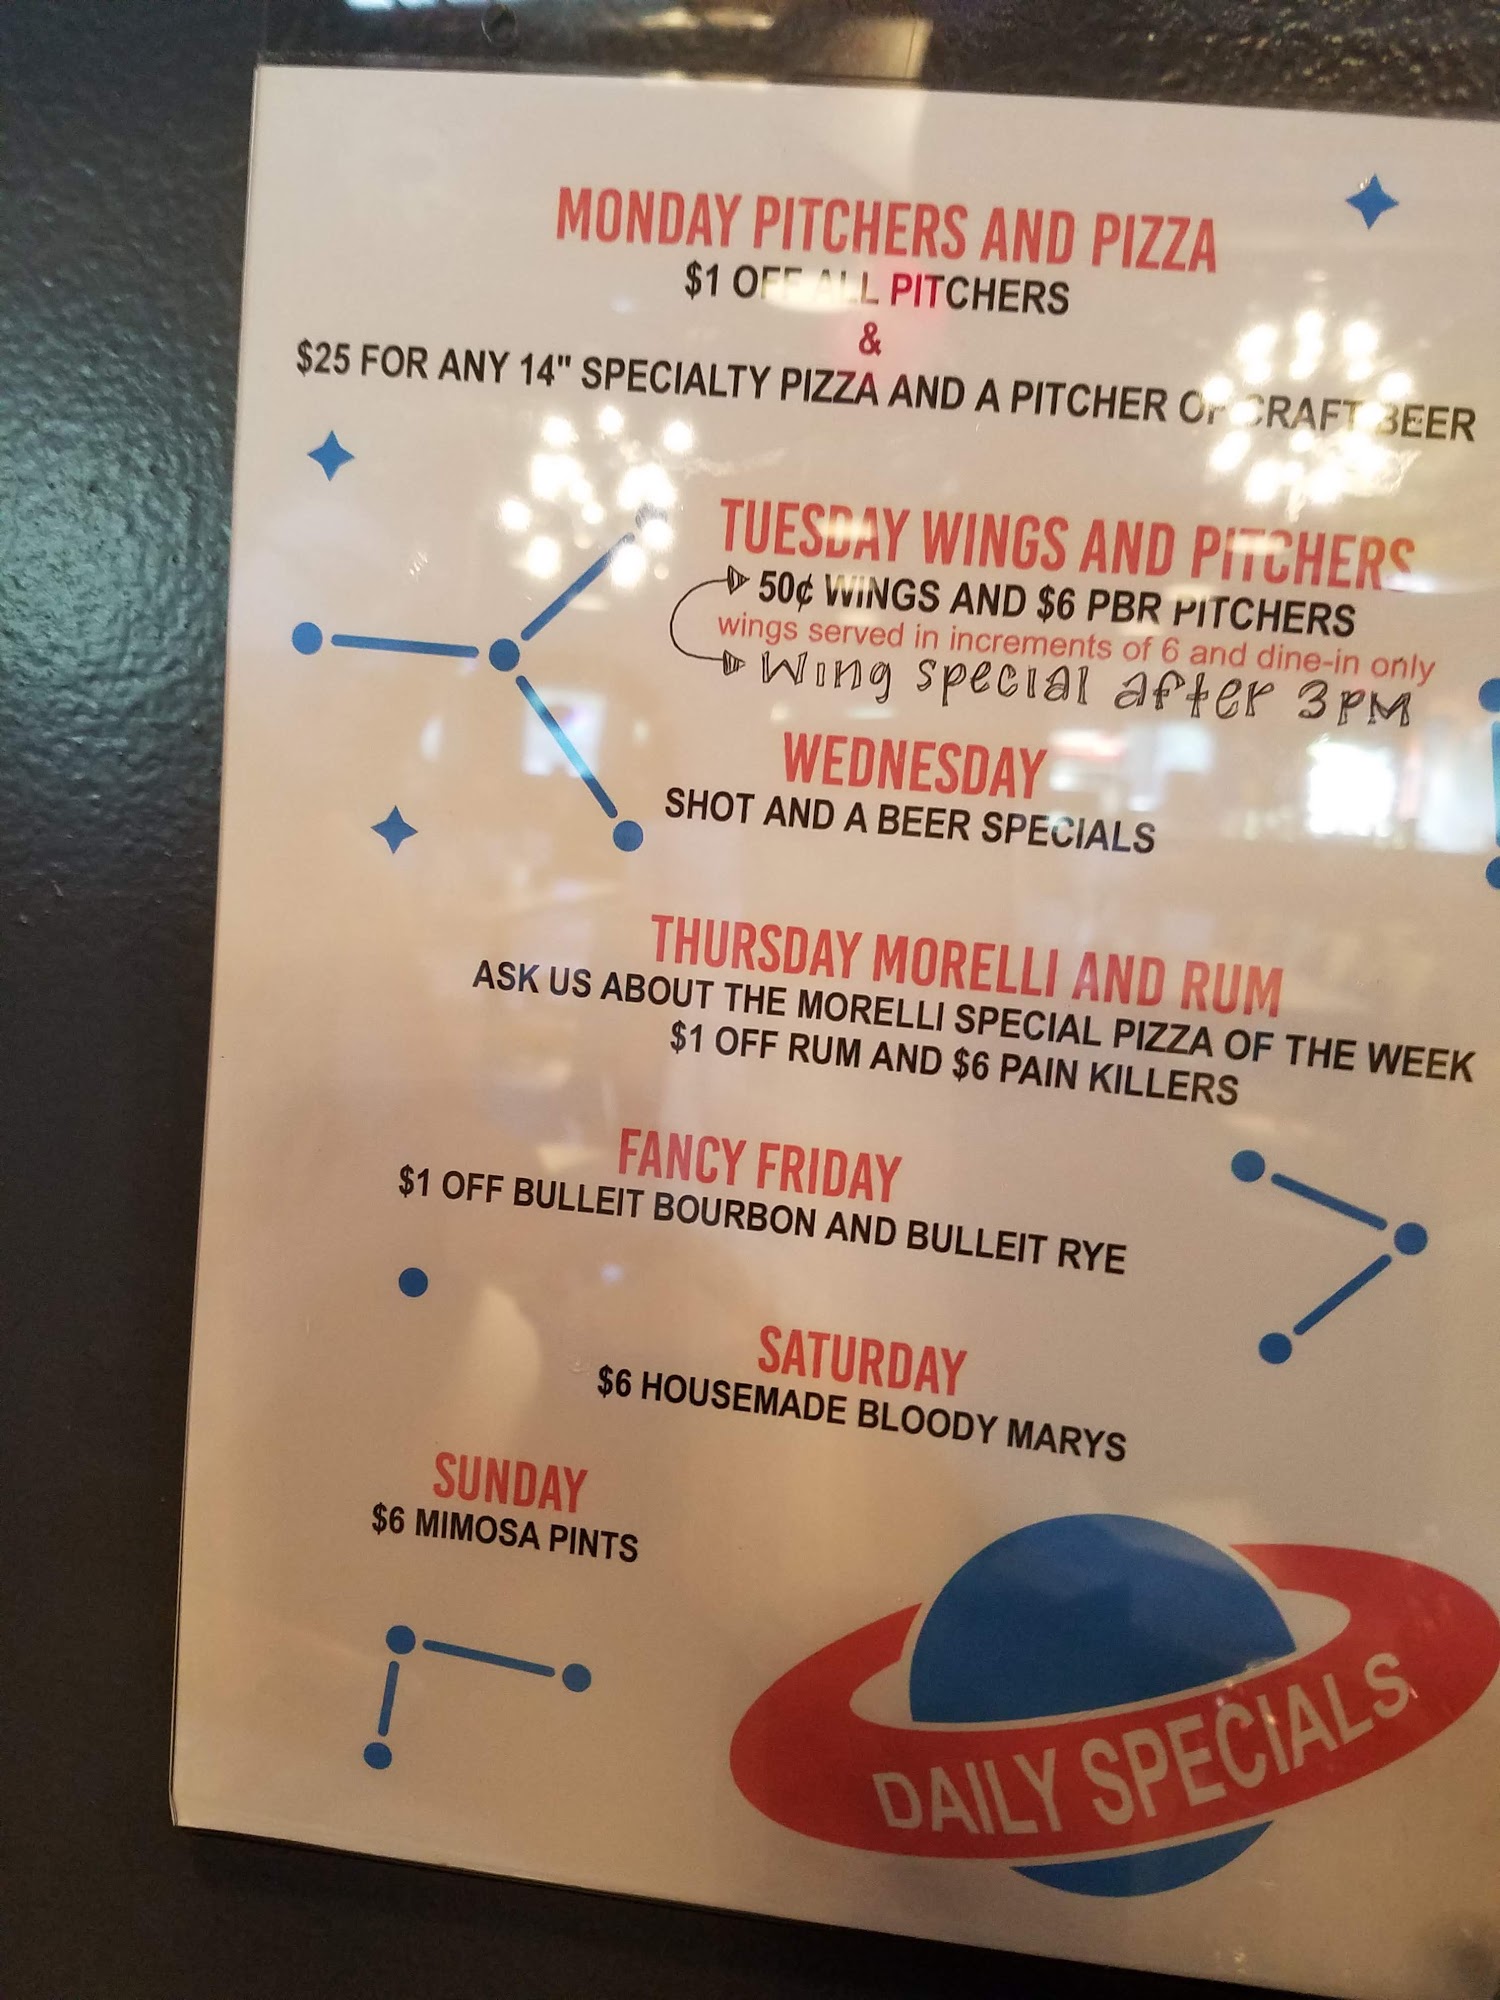 MONDAY PITCHERS AND PIZZA
$1 OFF ALL PITCHERS
&
$25 FOR ANY 14" SPECIALTY PIZZA AND A PITCHER OF CRAFT BEER
TUESDAY WINGS AND PITCHERS
50¢ WINGS AND $6 PBR PITCHERS
wings served in increments of 6 and dine-in only
Wing special after 3PM
WEDNESDAY
SHOT AND A BEER SPECIALS
THURSDAY MORELLI AND RUM
ASK US ABOUT THE MORELLI SPECIAL PIZZA OF THE WEEK
$1 OFF RUM AND $6 PAIN KILLERS
FANCY FRIDAY
$1 OFF BULLEIT BOURBON AND BULLEIT RYE
SATURDAY
$6 HOUSEMADE BLOODY MARYS
SUNDAY
$6 MIMOSA PINTS
DAILY SPECIALS